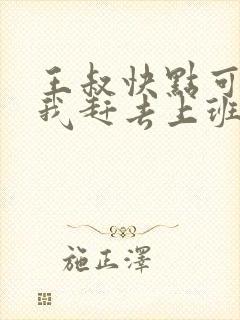 王叔快點可
我赶去上班
施正澤